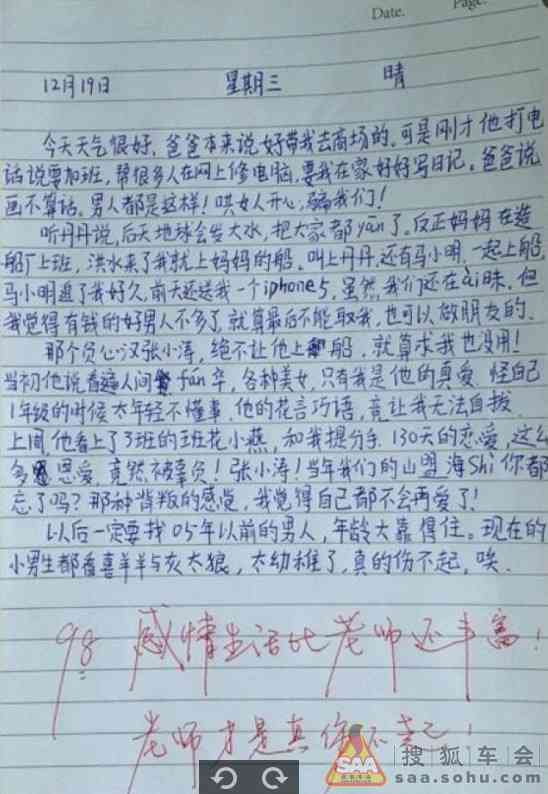 Date.
Page.
12月19日 星期三 晴
今天天气很好,爸爸本来说好带我去商场的。可是刚才他打电
话说要加班,帮很多人在网上修电脑,要我在家好好写日记。爸爸说
画不算话。男人都是这样!哄女人开心,骗我们!
听丹丹说,后天地球会发大水,把大家都yān了。反正妈妈在造
船厂上班,洪水来了我就上妈妈的船。叫上丹丹,还有马小明,一起上船。
马小明追了我好久,前天还送我一个iphone5,虽然我们还在ài昧。但
我觉得有钱的好男人不多了,就算最后不能取我,也可以做朋友的。
那个负心汉张小涛,绝不让他上船,就算求我也没用!
当初他说看遍人间fán华,各种美女,只有我是他的真爱,怪自己
1年级的时候太年轻不懂事,他的花言巧语,竟让我无法自拨。
上周,他看上了3班的班花小燕,和我提分手,130天的恋爱,这么
多恩爱,竟然被辜负!张小涛!当年我们的山盟海Shi你都
忘了吗?那种背叛的感觉,我觉得自己都不会再爱了!
以后一定要找05年以前的男人,年龄大靠得住。现在的
小男生都看喜羊羊与灰太狼,太幼稚了,真的伤不起,唉。
98 感情生活比老师还丰富!
老师才是真伤不起!
SAA
搜狐车会
saa.sohu.com